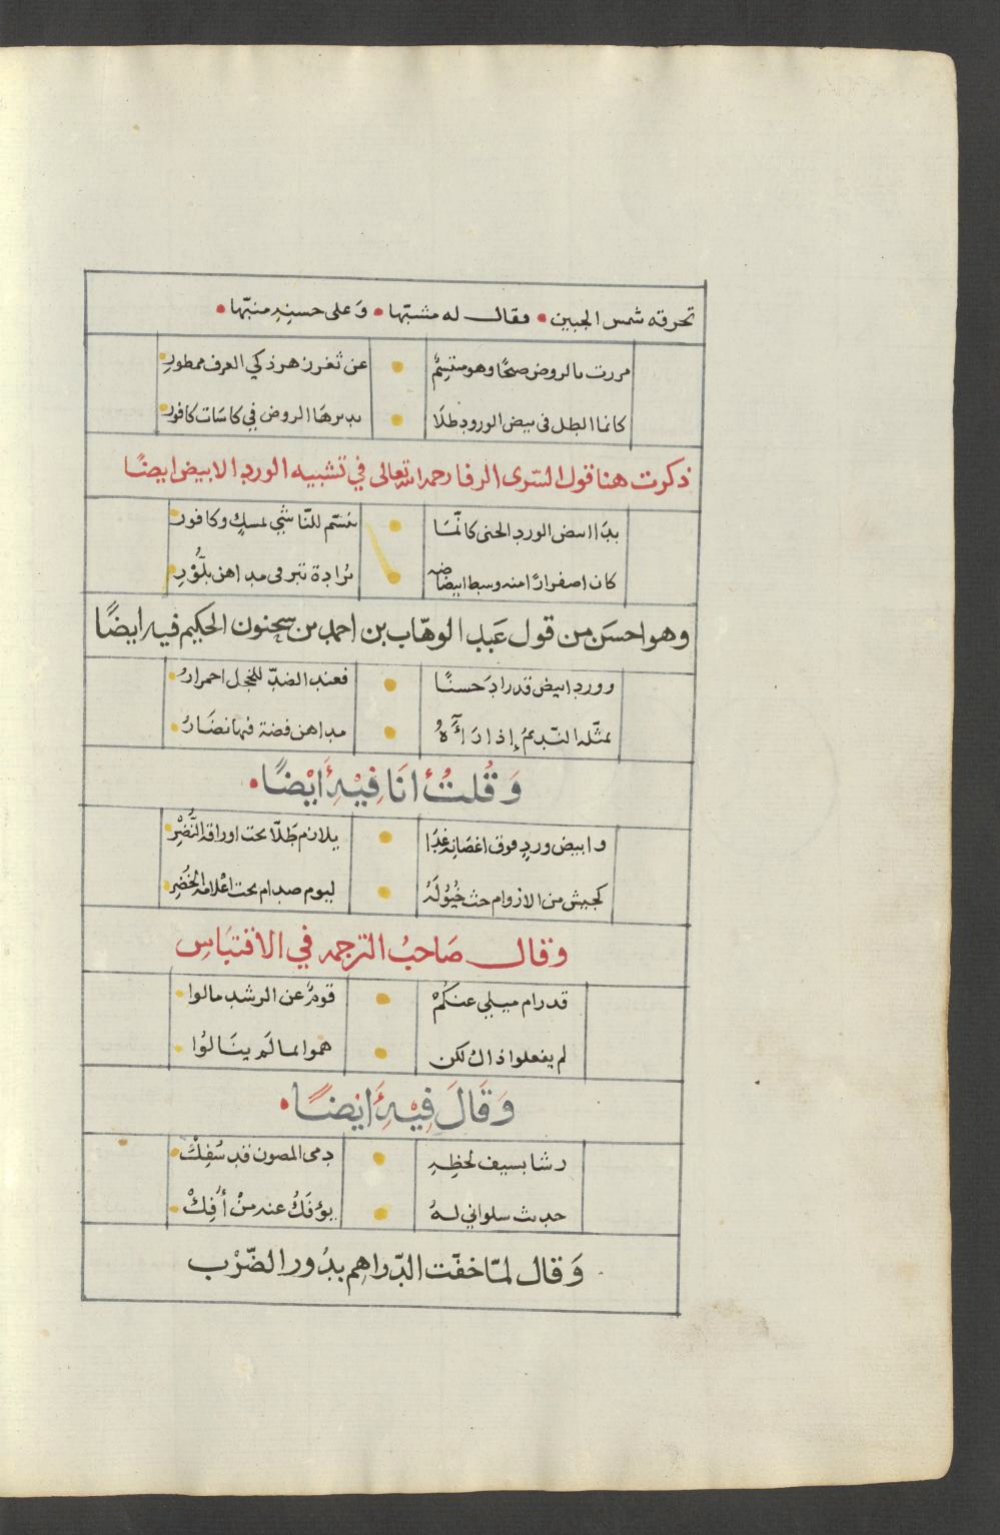 تحرقه شمس الجبين • وقال له مشبّها • وَعلى حسنِهِ منبّها •
مررت بالروض صبحًا وهو مبتسِمٌ • عن ثغر زهر ذكي العرف ممطورِ
كانما الطل فى بيض الورود طلًا • يديرهَا الروض فِي كاسَات كافورِ
ذكرت هنا قول السّرى الرفا رحمه الله تعالى في تشبيه الورد الابيض ايضًا
بدَا ابيض الورد الجنى كانّمَا • تنسّم للنّاشي لمسكٍ وكافور
كان اصفرارًا منه وسط ابيضاضه • بُرادة تبر فى مداهن بلّوْرِ
وهو احسَن من قول عَبد الوهّاب بن احمد بن سحنون الحكيم فيه ايضًا
وورد ابيض قد زادَ حسنًا • فعند الضدّ للخجل احمرارُ
يمثّله النّديمُ إذا رَآَهُ • مداهن فضة فيها نضَارُ
وَقُلتُ أنَا فِيْهِ أَيْضًا •
وابيض وردٍ فوق اغصَانِه غدَا • يلازم طَلّا تحت اوراقه النُّضْرِ
كجيش من الاروام حث خُيُولَهُ • ليوم صدام تحت اعْلامه الخُضِر
وقال صَاحبُ الترجمه في الاقتبَاسِ
قد رام ميلي عنكُمْ • قومٌ عن الرشد مالوا
لم يفعلوا ذاك لكن • هموا بما لَم ينَالوُا
وَقَالَ فِيْهِ أَيْضًا •
رشا بسيف لحظِهِ • دمى المصون قد سُفِكْ
حديث سلواني لهُ • يؤفَكُ عنه منْ أُفِكْ
وَقال لمّا خفّت الدّراهم بدُور الضّرْب